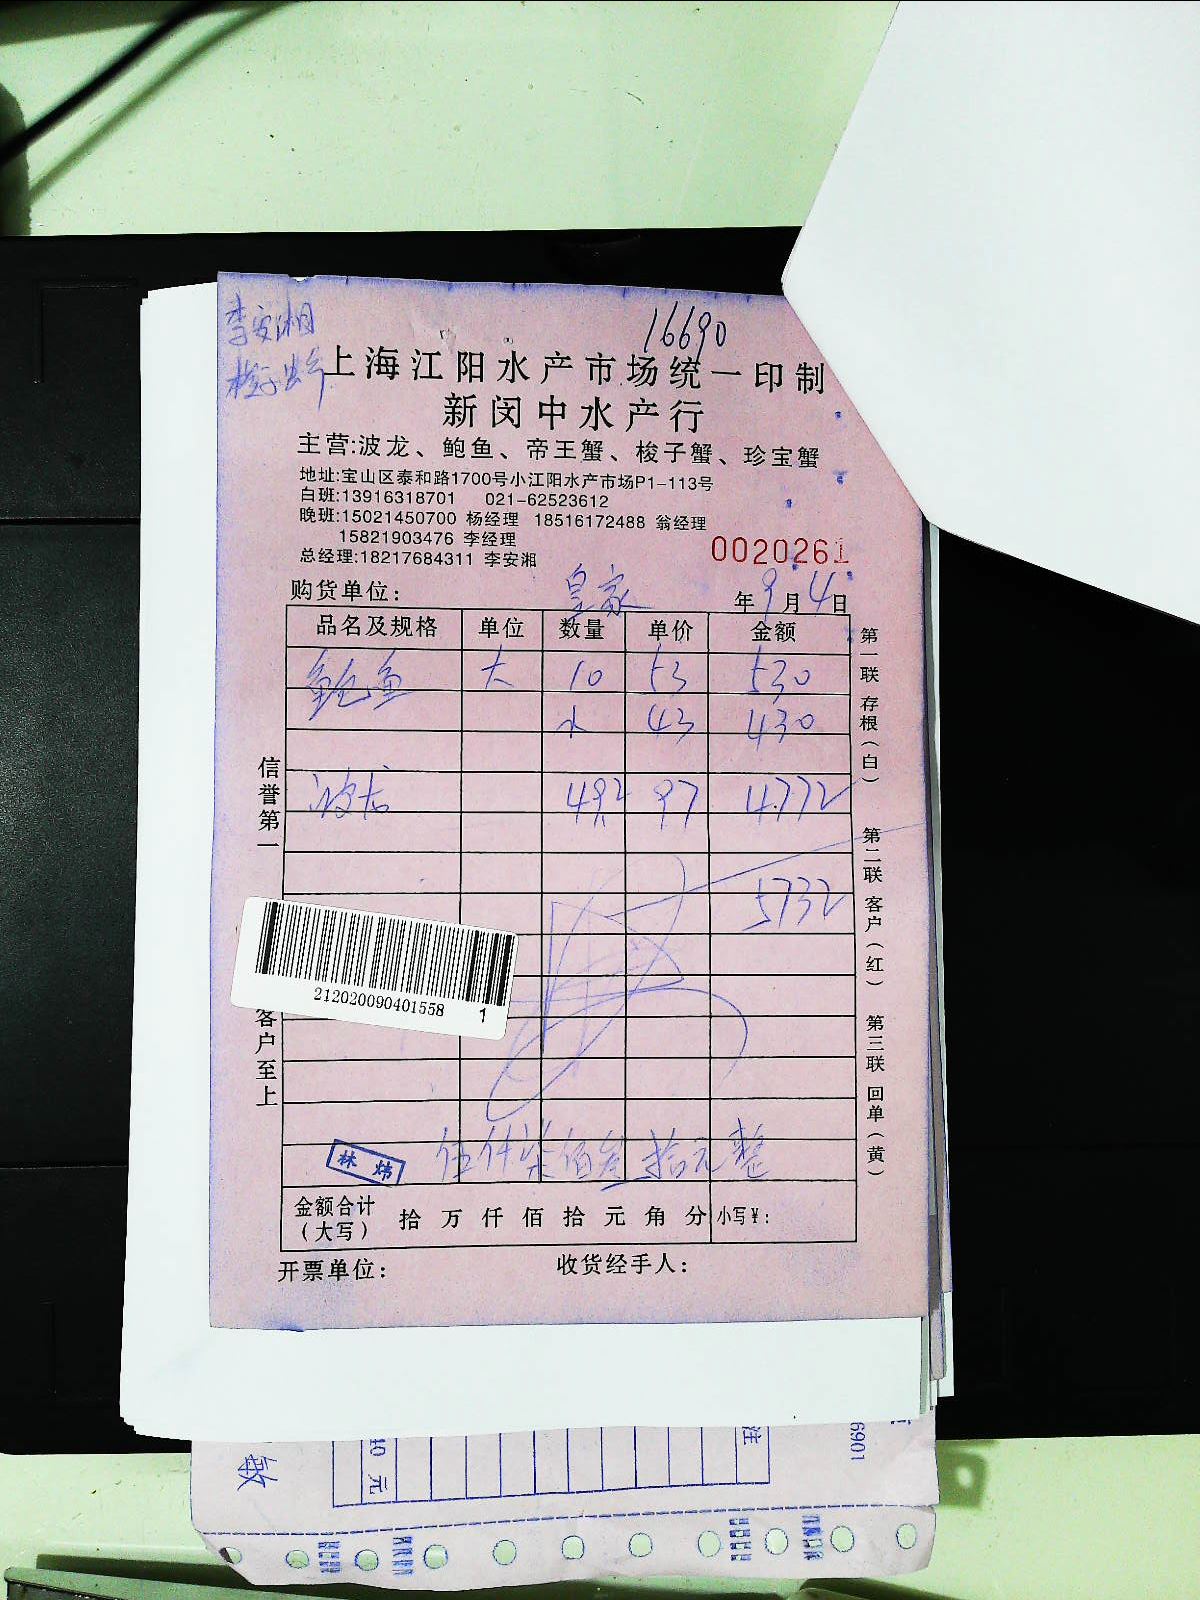 李安湘
16690
上海江阳水产市场统一印制
新闵中水产行
主营:波龙、鲍鱼、帝王蟹、梭子蟹、珍宝蟹
地址:宝山区泰和路1700号小江阳水产市场P1-113号
白班:13916318701 021-62523612
晚班:15021450700 杨经理 18516172488 翁经理
15821903476 李经理
总经理:18217684311 李安湘
0020261
购货单位: 皇家 年9月4日
品名及规格 单位 数量 单价 金额
鲍鱼 大 10 53 530
小 43 430
波龙 492 97 4772
5732
信誉第一
客户至上
第一联 存根(白)
第二联 客户(红)
第三联 回单(黄)
212020090401558 1
林炜
伍仟柒佰叁拾元整
金额合计(大写) 拾 万 仟 佰 拾 元 角 分 小写¥:
开票单位: 收货经手人:
注
6901
10 元